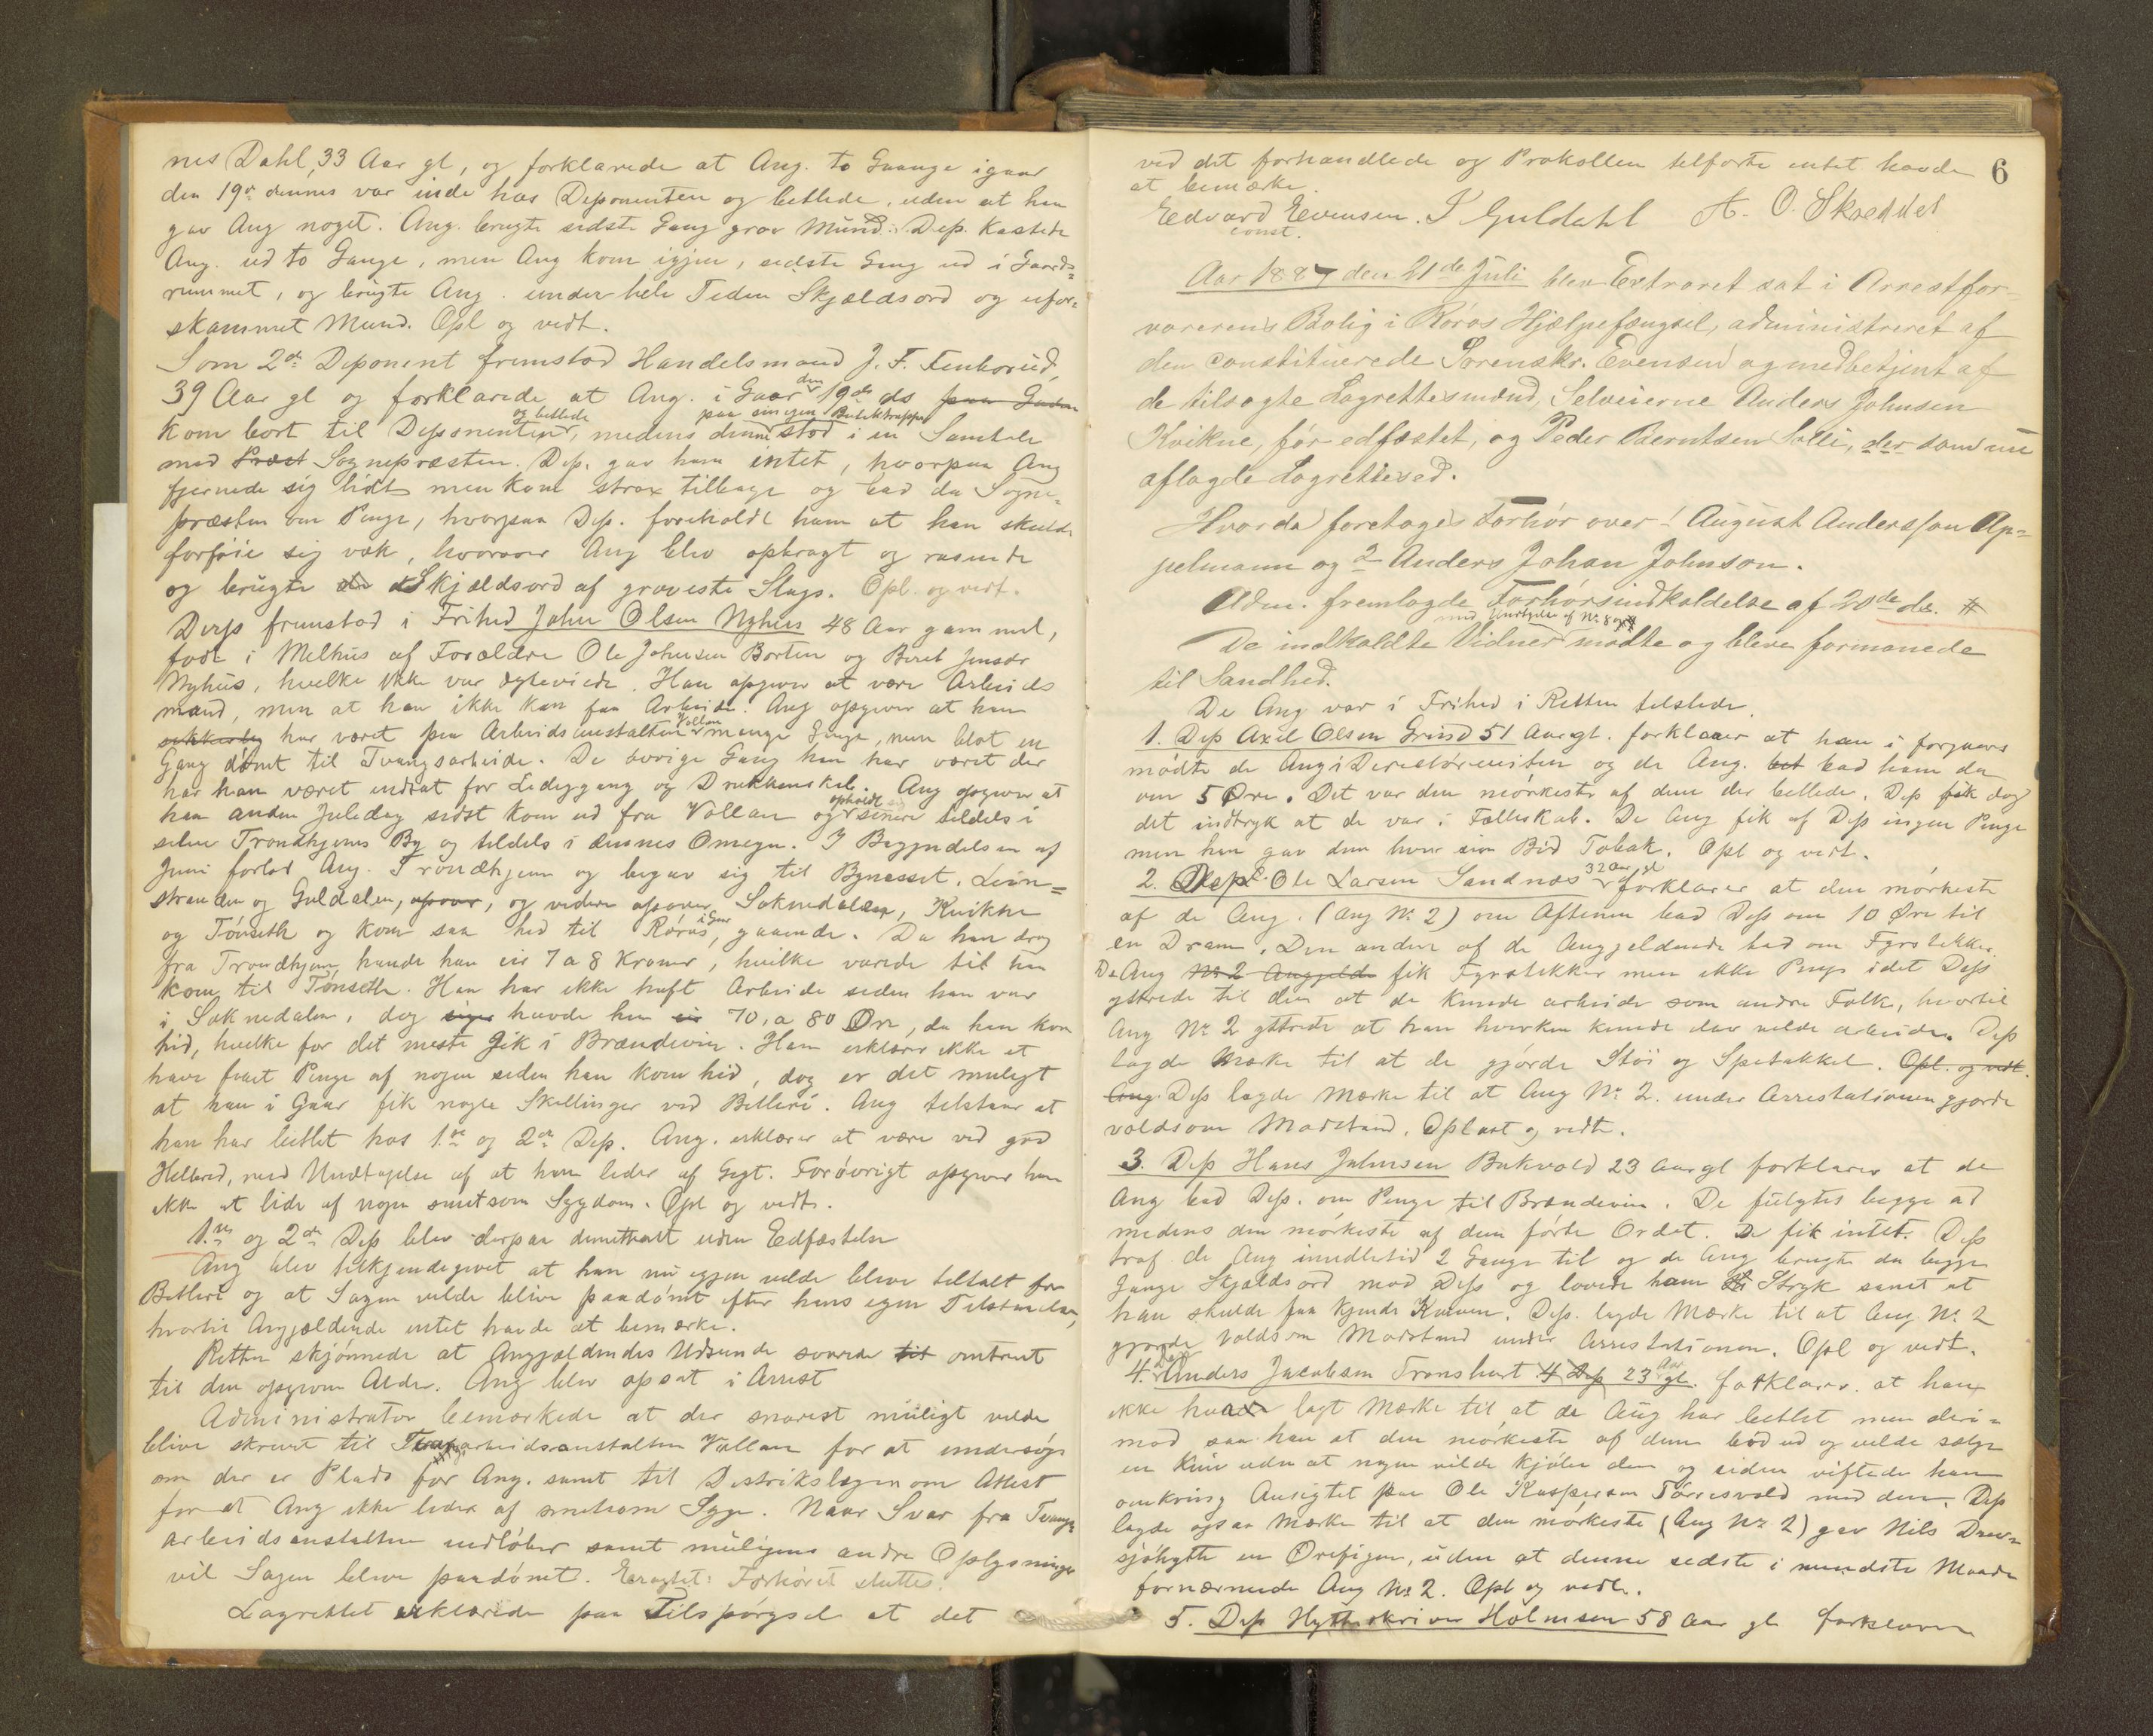 nes Dahl, 33 Aar gl, og forklarede at Ang. to Gange igaar
den 19de dennes var inde hos Deponenten og betlede, uden at han
gav Ang noget. Ang. brugte sidste Gang grov Mund. Dep. kastede
Ang. ud to Gange, men Ang kom igjen, sidste Gang ud i Gaards=
rummet, og brugte Ang. under hele Tiden Skjældsord og ufor=
skammet Mund. Opl og vedt.
Som 2den Deponent fremstod Handelsmand J. F.
39 Aar gl og forklarede at Ang. i Gaar den 19de ds
kom bort til Deponenten og betlede, medens denne paa sin egen Butiktrappe stod i en Samtale
med Præst Sognepræsten. Dep. gav ham intet, hvorpaa Ang
fjernede sig lidt men kom strax tilbage og bad da Sogne=
præsten om Penge, hvorpaa Dep. foreholdt ham at han skulde
forføie sig væk, hvorover Ang blev opbragt og rasende
og brugte Skjældsord af groveste Slags. Opl. og vedt.
Derps fremstod i Frihed John Olsen Nyhus 48 Aar gammel,
født i Melhus af Forældre Ole Johnsen Borten og Beret Jensdr
Nyhus, hvilke ikke var ægteviede. Han opgiver at være Arbeids
mand, men at han ikke kan faa Arbeide. Ang opgiver at han
har været paa Arbeidsanstalten Vollan mange Gange, men blot en
Gang dømt til Tvangsarbeide. De øvrige Gang han har været der
har han været indsat for Lediggang og Drukkenskab. Ang opgiver at
han anden Juledag sidst kom ud fra Vollan og opholdt sig senere tildels i
selve Trondhjems By og tildels i dennes Omegn. I Begyndelsen af
Juni forlod Ang. Trondhjem og begav sig til Bynesset, Lein=
stranden og Guldalen, opover, og videre opover Soknedalen, Kvikne
og Tønseth og kom saa hid til Røros, igaar gaaende. Da han drog
fra Trondhjem havde han en 7 a 8 Kroner, hvilke varede til han
kom til Tønseth. Han har ikke havt Arbeide siden han var
i Soknedalen, dog havde han en 70 a 80 Øre, da han kom
hid, hvilke for det meste gik i Brændevin. Han erklærer ikke at
have faaet Penge af nogen siden han kom hid, dog er det muligt
at han i Gaar fik nogle Skillinger ved Betleri. Ang tilstaar at
han har betlet hos 1ste og 2den Dep. Ang. erklærer at være ved god
Helbred, med Undtagelse af at han lider af Gigt. Forøvrigt opgiver han
ikke at lide af nogen smitsom Sygdom. Opl og vedt.
1ste og 2den Dep blev derpaa dimitteret uden Edfæstelse
Ang blev tilkjendegivet at han nu igjen vilde blive tiltalt for
Betleri og at Sagen vilde blive paadømt efter hans egen Tilstaaelse,
hvortil Angjældende intet havde at bemærke.
Retten skjønnede at Angjældendes Udseende svarede til omtrent
til den opgivne Alder. Ang blev opsat i Arrest
Administrator bemærkede at der snarest muligt vilde
blive skrevet til Tvangsarbeidsanstalten Vollan for at undersøge
om der er Plads for Ang. samt til Distriktslægen om Attest
for at Ang ikke lider af smitsom Syge. Naar Svar fra Tvangs
arbeidsanstalten indløber samt muligens andre Oplysninger
vil Sagen blive paadømt. Forhøret sluttet.
Lagrettet erklærede paa Tilspørgsel at det
6
ved det forhandlede og Protokollen tilførte intet havde
at bemærke.
Edvard Evensen. I Guldahl A. O. Skreddel
const.
Aar 1887 den 21de Juli blev Extraret sat i Arrestfor-
varerens Bolig i Røros Hjælpefængsel, administreret af
den constituerede Sorenskr. Evensen og medbetjent af
de tilsagte Lagrettesmænd, Selveierne Anders Johnsen
Kvikne, før edfæstet, og Peder Berntsen Solli, der som nu
aflagde Lagretteed.
Hvorda foretoges Forhør over 1 August Andersson Ap=
pelmann og 2 Anders Johan Johnson.
Adm. fremlagde Forhørsindkaldelse af 20de ds. #
De indkaldte Vidner med Undtagelse af No. 8 mødte og bleve formanede
til Sandhed.
De Ang var i Frihed i Retten tilstede.
1. Dep Axel Olsen Grind 51 Aar gl. forklarer at han i forgaars
mødte de Ang i Direktørveiten og de Ang. bad ham da
om 5 Øre. Det var den mørkeste af dem der betlede. Dep fik dog
det indtryk at de var i Fælleskab. De Ang fik af Dep ingen Penge
men han gav dem hver sin Bid Tobak. Opl og vedt.
2. Dep Ole Larsen Sandnæs 32 Aar gl forklarer at den mørkeste
af de Ang. (Ang No 2) om Aftenen bad Dep om 10 Øre til
en Dram. Den anden af de Angjeldende bad om Fyrstikker.
De Ang No 2 Angjeld fik Fyrstikker men ikke Penge idet Dep
yttrede til dem at de kunde arbeide som andre Folk, hvortil
Ang No 2 yttrede at han hverken kunde eller vilde arbeide. Dep
lagde Mærke til at de gjorde Støi og Spetakkel. Opl. og vedt.
Ang. Dep lagde Mærke til at Ang No 2. under Arrestationen gjorde
voldsom Modstand. Oplæst og vedt.
3. Dep Hans Johnsen Bukvold 23 Aar gl forklarer at de
Ang bad Dep. om Penge til Brændevin. De fulgtes begge ad
medens den mørkeste af dem førte Ordet. De fik intet. Dep
traf de Ang imidlertid 2 Gange til og de Ang brugte da begge
Gange Skjældsord mod Dep og lovede ham Stryk samt at
han skulde faa kjende Kniven. Dep. lagde Mærke til at Ang No. 2
gjorde voldsom Modstand under Arrestationen. Opl og vedt.
4. Dep Anders Jacobsen Tronshart 4 Dep 23 Aar gl. forklarer at han
ikke havde lagt Mærke til at de Ang har betlet men deri=
mod saa han at den mørkeste af dem bød ud og vilde sælge
en Kniv uden at nogen vilde kjøbe den og siden viftede han
omkring Ansigtet paa Ole Kaspersen Tørresvold med den. Dep
lagde ogsaa Mærke til at den mørkeste (Ang No 2) gav Nils
sjøhytte en Ørefigen, uden at denne sidste i mindste Maade
fornærmede Ang No 2. Opl og vedt.
5. Dep Hytteskriver Holmsen 58 Aar gl forklarer